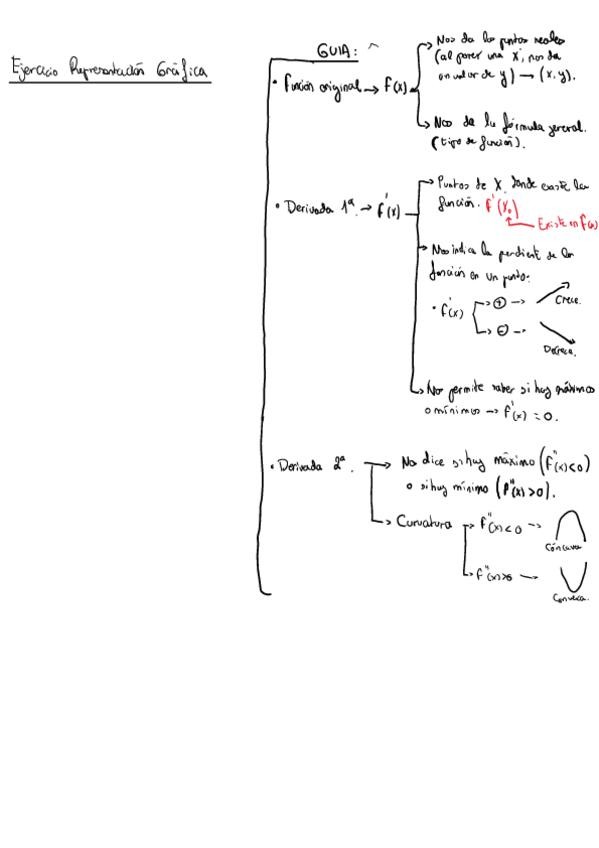 Ejercicio Representación Gráfica
GUIA:
• Función original → f(x)
→ Nos da los puntos reales
(al poner una x, nos da
un valor de y) → (x,y).
→ Nos da la fórmula general.
(tipo de función).
• Derivada 1ª. → f'(x)
→ Puntos de X donde existe la
función. f'(x₀)
Existe en f(x)
→ Nos indica la pendient de la
función en un punto.
• f'(x)
→ ⊕ → Crece.
→ ⊖ → Decrece.
→ Nos permite saber si hay máximos
o mínimos → f'(x) = 0.
• Derivada 2ª.
→ Nos dice si hay máximo (f''(x)<0)
o si hay mínimo (f''(x)>0).
→ Curvatura
→ f''(x)<0 →
Cóncava
→ f''(x)>0 →
Convexa.